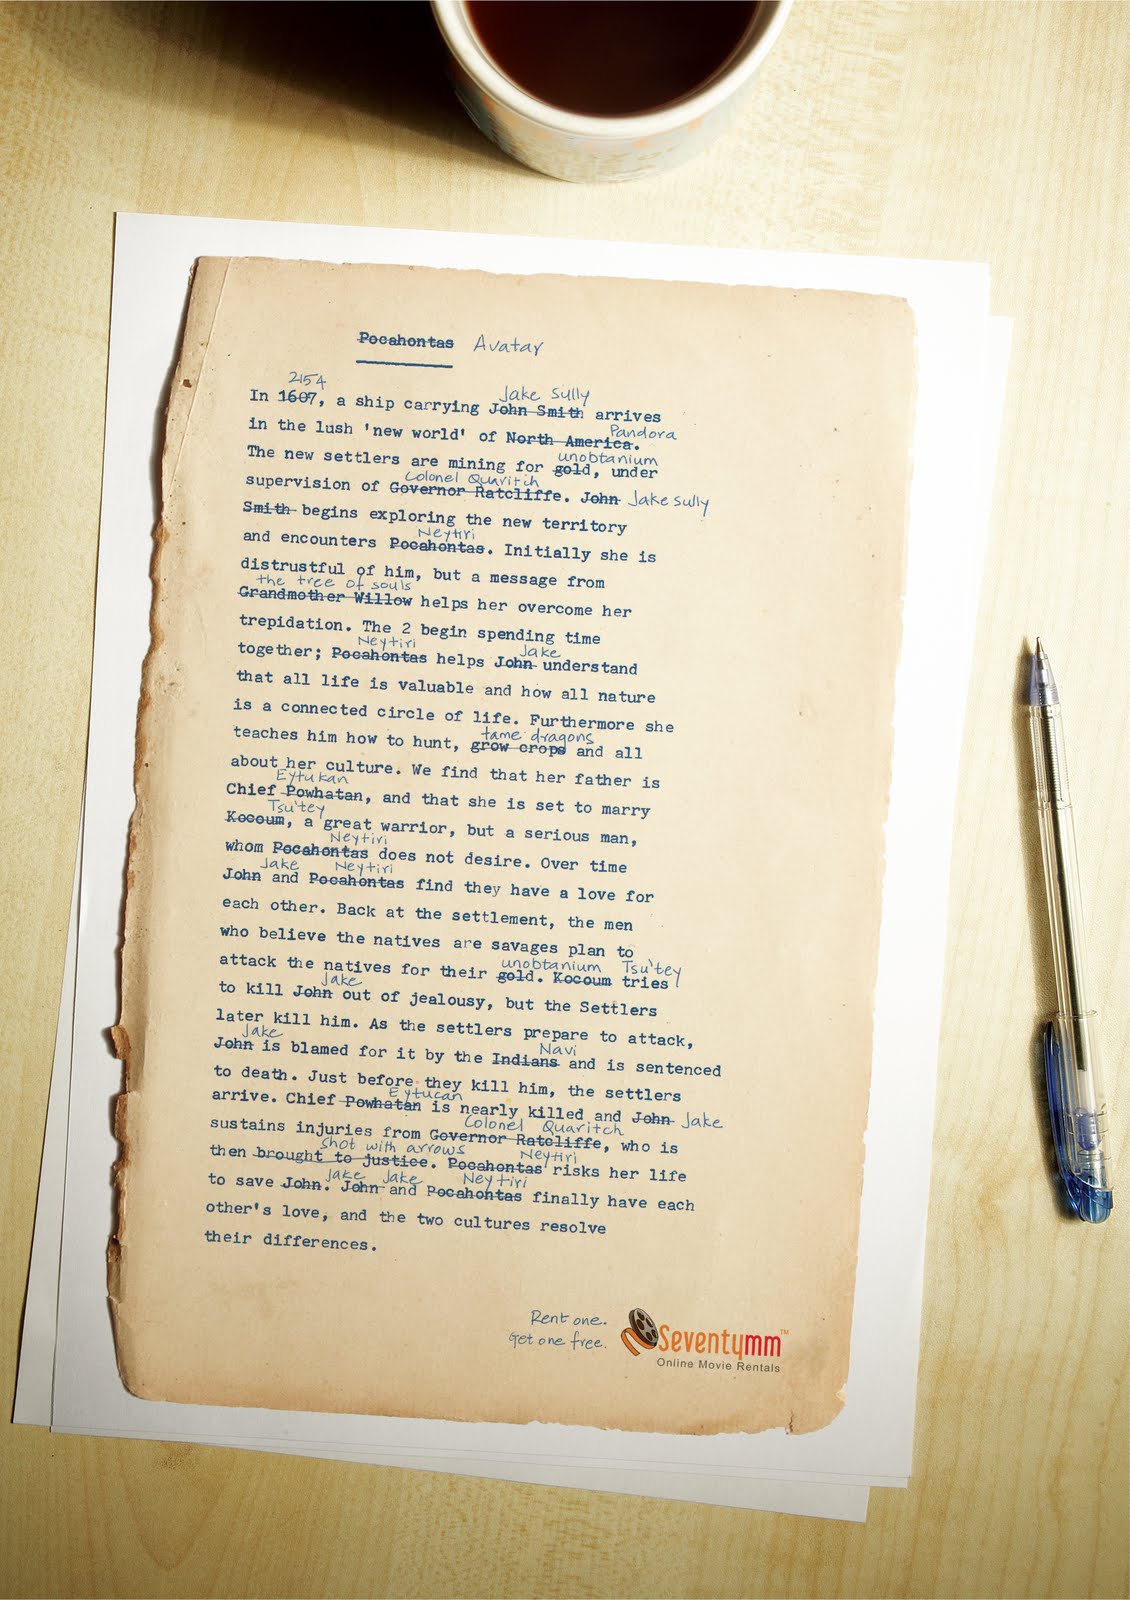 Pocahontas Avatar
2154
Jake Sully
In 1607, a ship carrying John Smith arrives
Pandora
in the lush 'new world' of North America.
unobtanium
The new settlers are mining for gold, under
Colonel Quaritch
supervision of Governor Ratcliffe. John Jake Sully
Smith begins exploring the new territory
Neytiri
and encounters Pocahontas. Initially she is
distrustful of him, but a message from
the tree of souls
Grandmother Willow helps her overcome her
trepidation. The 2 begin spending time
Neytiri Jake
together; Pocahontas helps John understand
that all life is valuable and how all nature
is a connected circle of life. Furthermore she
tame dragons
teaches him how to hunt, grow crops and all
about her culture. We find that her father is
Eytukan
Chief Powhatan, and that she is set to marry
Tsu'tey
Kocoum, a great warrior, but a serious man,
Neytiri
whom Pocahontas does not desire. Over time
Jake Neytiri
John and Pocahontas find they have a love for
each other. Back at the settlement, the men
who believe the natives are savages plan to
unobtanium Tsu'tey
attack the natives for their gold. Kocoum tries
Jake
to kill John out of jealousy, but the Settlers
later kill him. As the settlers prepare to attack,
Jake Navi
John is blamed for it by the Indians and is sentenced
to death. Just before they kill him, the settlers
Eytucan
arrive. Chief Powhatan is nearly killed and John Jake
Colonel Quaritch
sustains injuries from Governor Ratcliffe, who is
shot with arrows Neytiri
then brought to justice. Pocahontas risks her life
Jake Jake Neytiri
to save John. John and Pocahontas finally have each
other's love, and the two cultures resolve
their differences.
Rent one.
Get one free.
Seventymm™
Online Movie Rentals